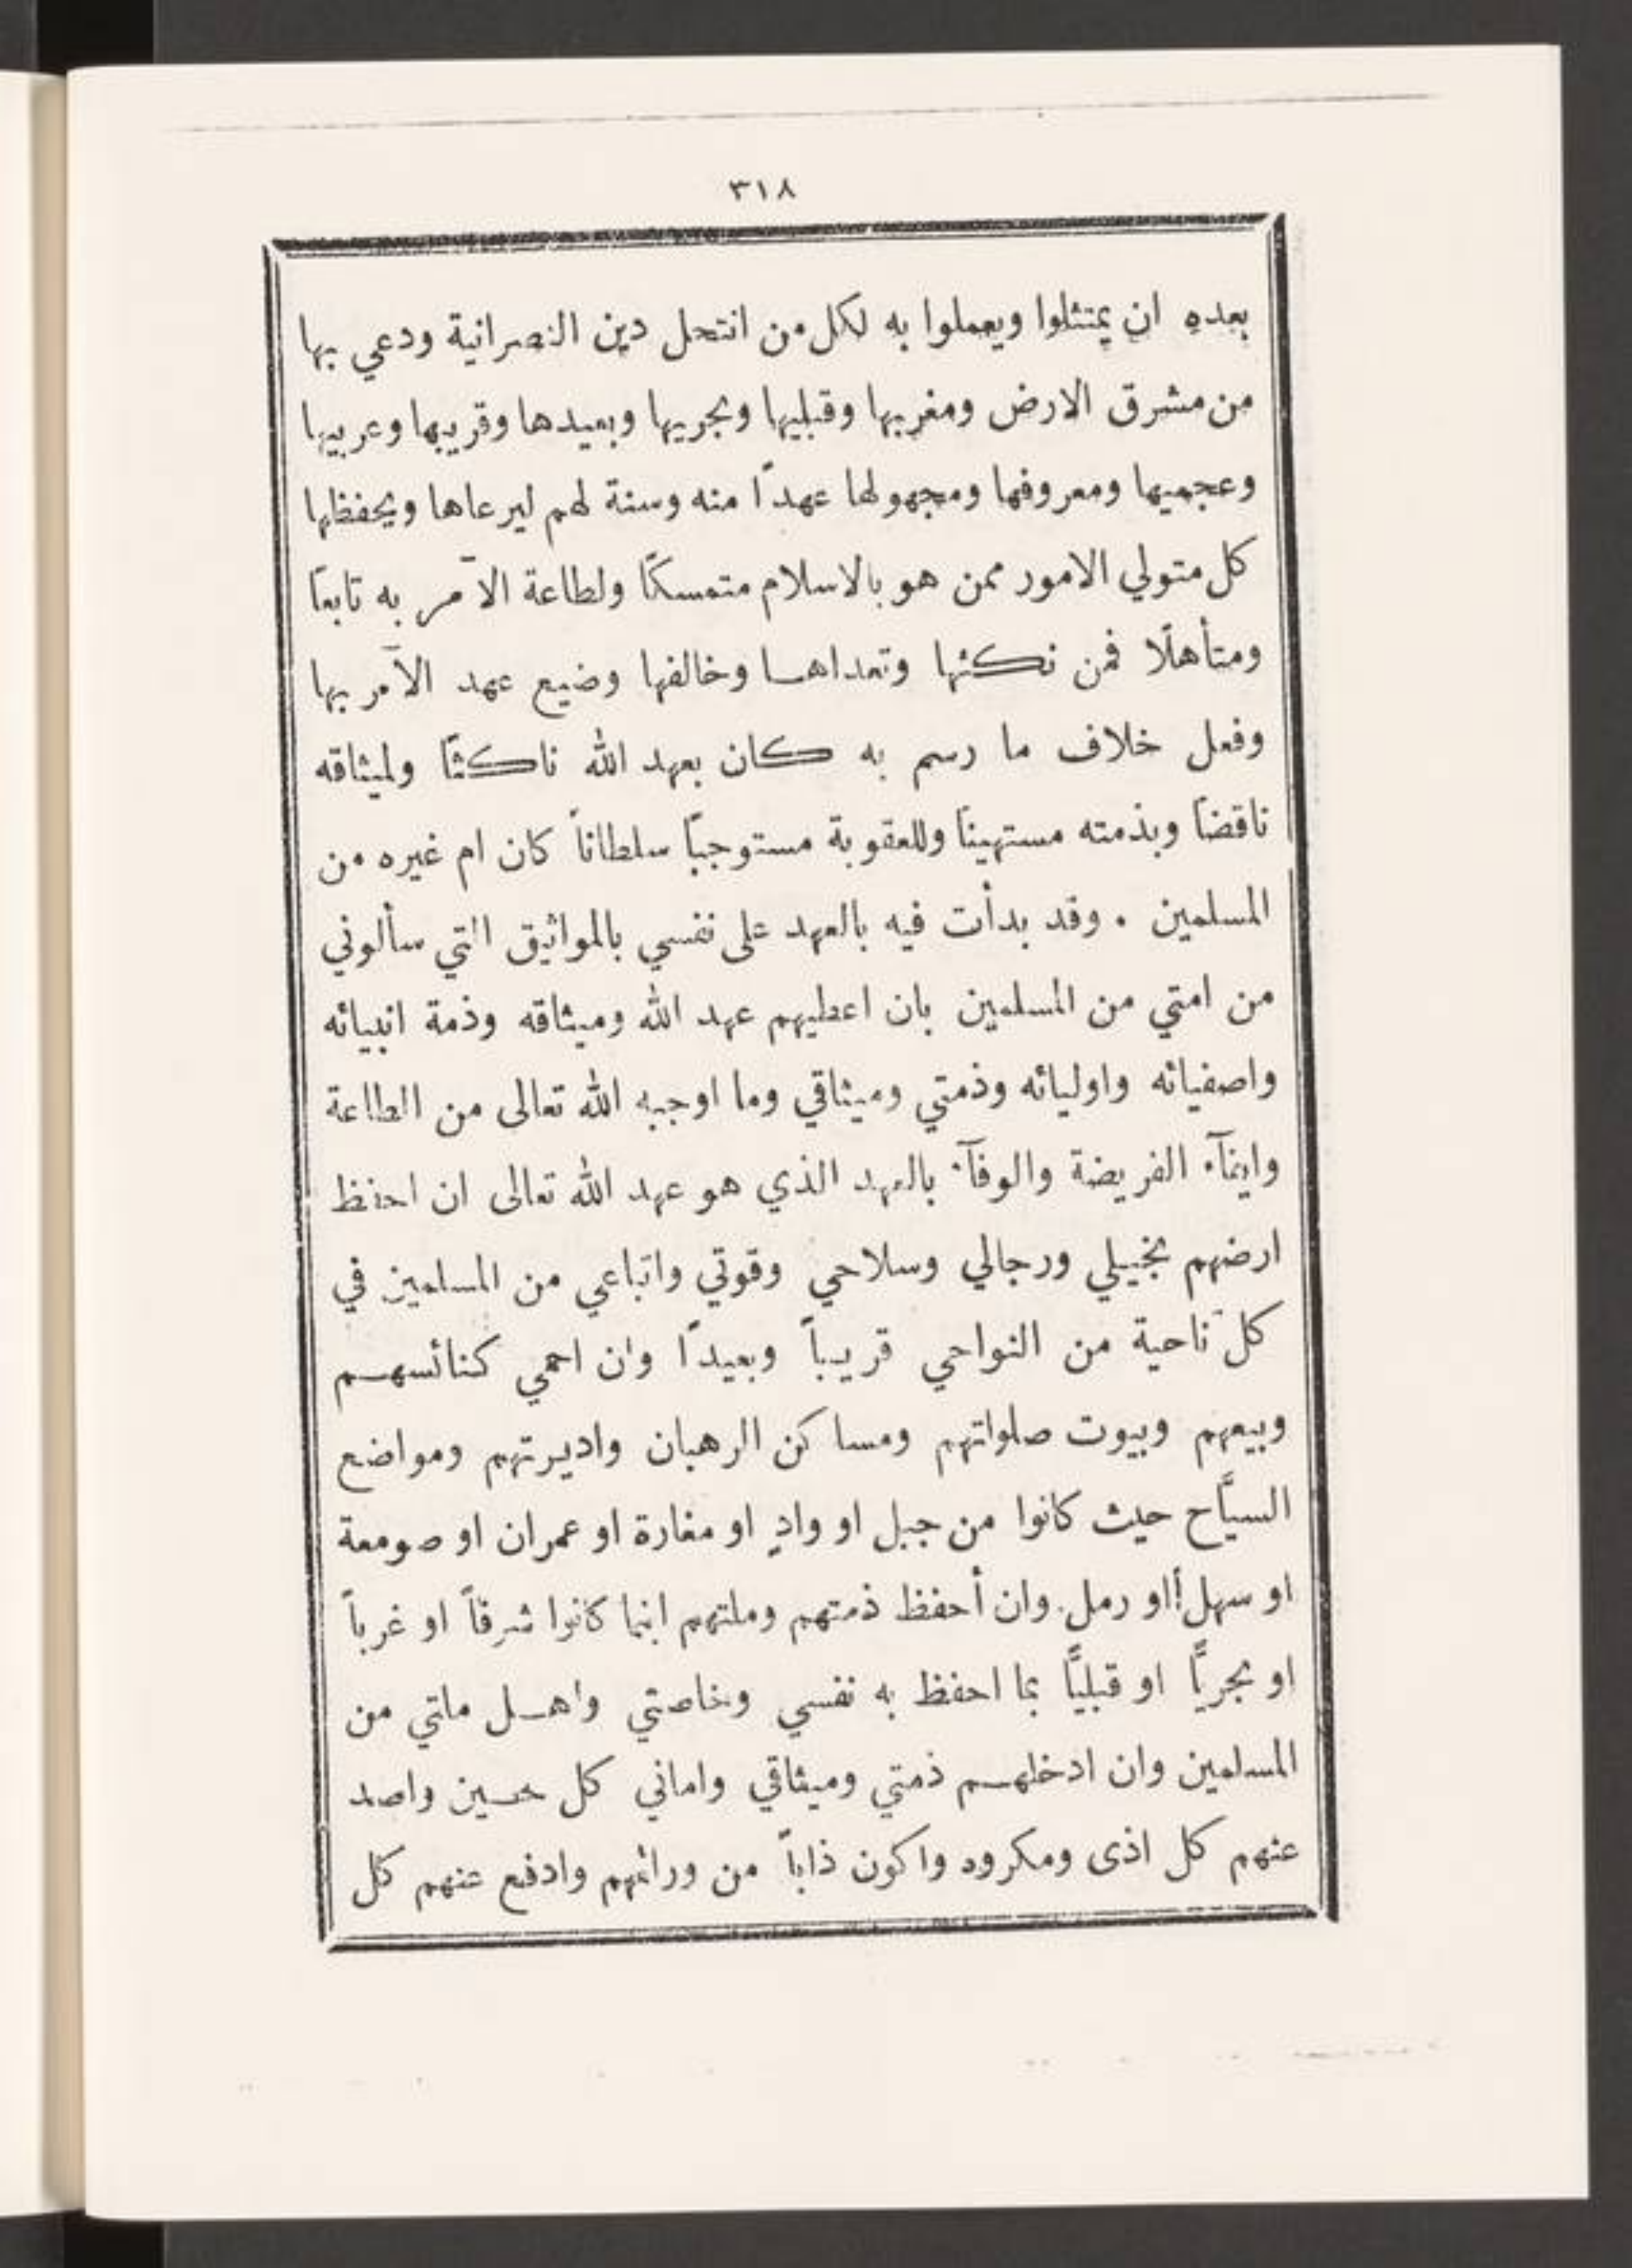 ٣١٨
بعدهِ ان يمتثلوا ويعملوا به لكل من انتحل دين النصرانية ودعي بها
من مشرق الارض ومغربها وقبليها وبحريها وبعيدها وقريبها وعربيها
وعجميها ومعروفها ومجهولها عهدًا منه وسنة لهم ليرعاها ويحفظها
كل متولي الامور ممن هو بالاسلام متمسكًا ولطاعة الآمر به تابعًا
ومتأهلًا فمن نكثها وتعداها وخالفها وضيع عهد الآمر بها
وفعل خلاف ما رسم به كان بعهد الله ناكثًا ولميثاقه
ناقضًا وبذمته مستهينًا وللعقوبة مستوجبًا سلطانًا كان ام غيره من
المسلمين . وقد بدأت فيه بالعهد على نفسي بالمواثيق التي سألوني
من امتي من المسلمين بان اعطيهم عهد الله وميثاقه وذمة انبيائه
واصفيائه واوليائه وذمتي وميثاقي وما اوجبه الله تعالى من الطاعة
وايفآء الفريضة والوفآء بالعهد الذي هو عهد الله تعالى ان احفظ
ارضهم بخيلي ورجالي وسلاحي وقوتي واتباعي من المسلمين في
كل ناحية من النواحي قريباً وبعيدًا وان احمي كنائسهم
وبيعهم وبيوت صلواتهم ومساكن الرهبان واديرتهم ومواضع
السيَّاح حيث كانوا من جبل او وادٍ او مغارة او عمران او صومعة
او سهل او رمل. وان أحفظ ذمتهم وملتهم اينما كانوا شرقاً او غرباً
او بحريًّا او قبليًّا بما احفظ به نفسي وخاصتي واهل ملتي من
المسلمين وان ادخلهم ذمتي وميثاقي واماني كل حين واصد
عنهم كل اذى ومكروه واكون ذاباً من ورائهم وادفع عنهم كل